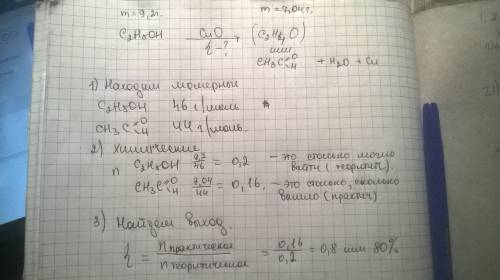 m=9,2г. m=7,04г.
C2H5OH CuO (C2H4O)
η-? или
CH3C O H + H2O + Cu
1) Находим молярные
C2H5OH 46 г/моль
CH3C O H 44 г/моль.
2) Химические
n C2H5OH 9,2/46 = 0,2 – это сколько могло
выйти (теорит).
CH3C O H 7,04/44 = 0,16, – это столько, сколько
вышло (практ)
3) Найдем выход
η = n практическое / n теоритическое = 0,16/0,2 = 0,8 или 80%